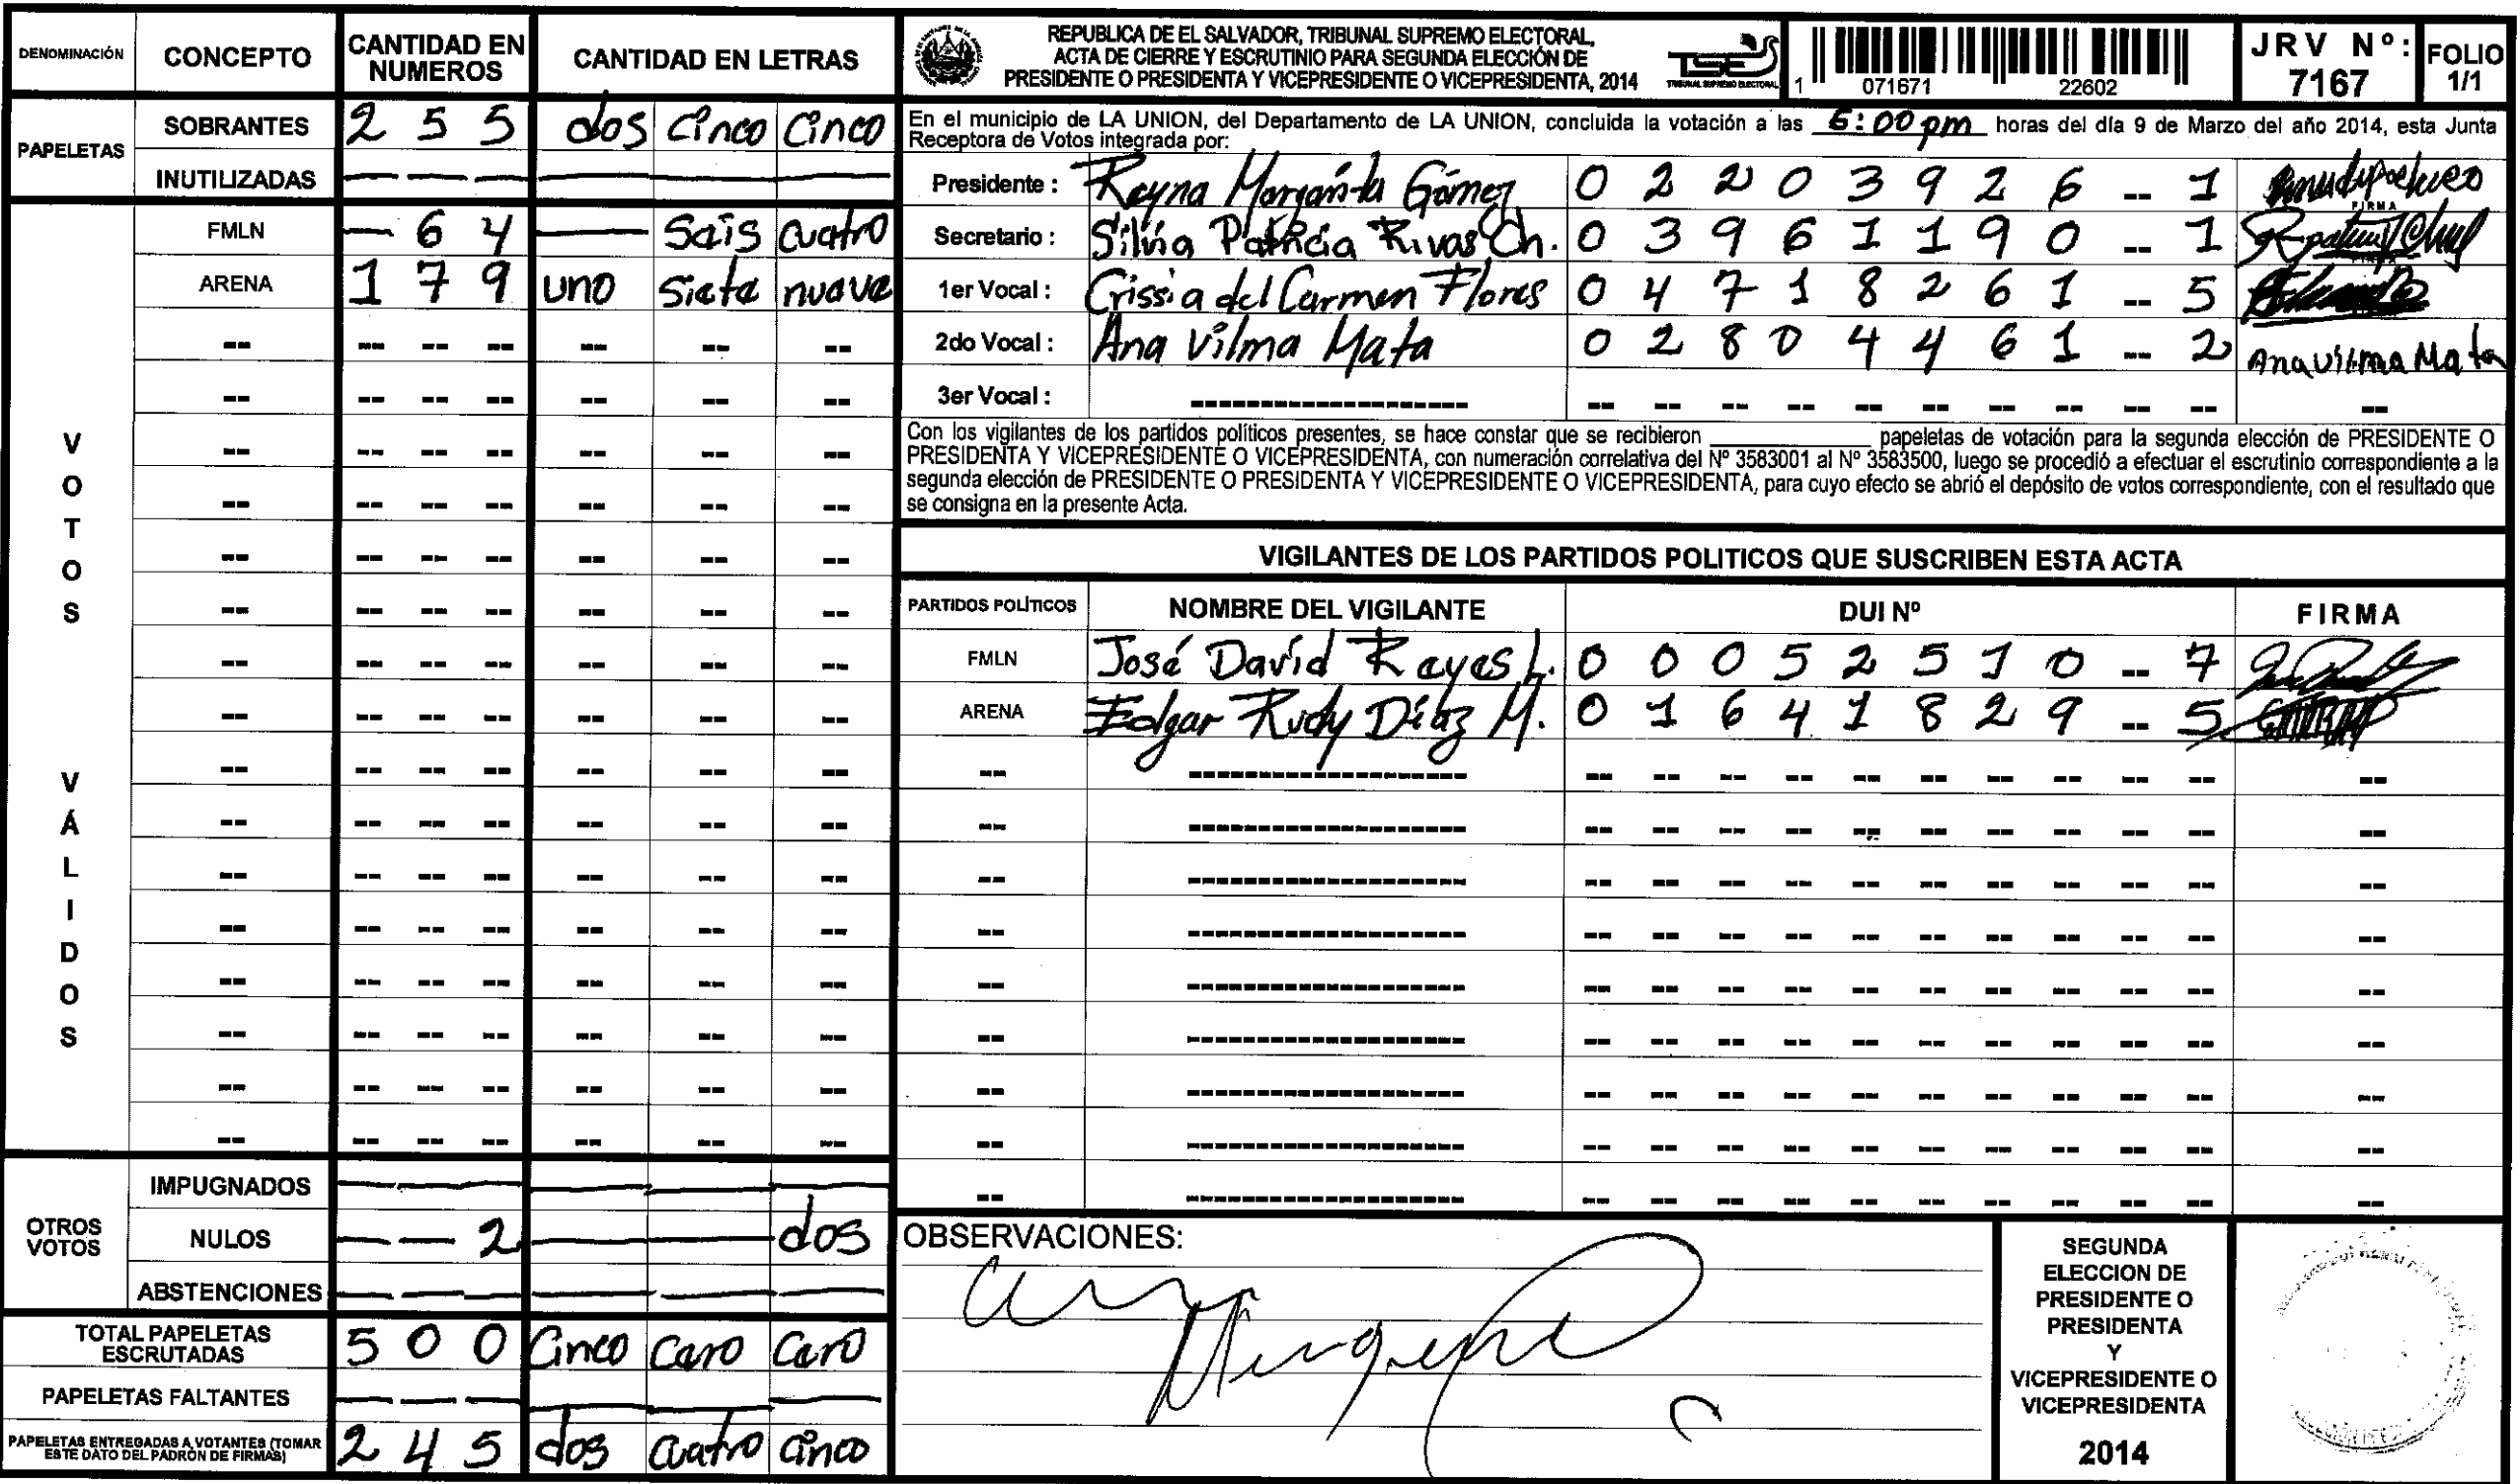 DENOMINACIÓN CONCEPTO CANTIDAD EN NUMEROS CANTIDAD EN LETRAS
PAPELETAS
SOBRANTES 2 5 5 dos cinco cinco
INUTILIZADAS
VOTOS VÁLIDOS
FMLN — 6 4 — Seis cuatro
ARENA 1 7 9 uno Siete nueve
OTROS VOTOS
IMPUGNADOS
NULOS — — 2 dos
ABSTENCIONES
TOTAL PAPELETAS ESCRUTADAS 5 0 0 Cinco Cero Cero
PAPELETAS FALTANTES
PAPELETAS ENTREGADAS A VOTANTES (TOMAR ESTE DATO DEL PADRÓN DE FIRMAS) 2 4 5 dos cuatro cinco
REPUBLICA DE EL SALVADOR, TRIBUNAL SUPREMO ELECTORAL,
ACTA DE CIERRE Y ESCRUTINIO PARA SEGUNDA ELECCIÓN DE
PRESIDENTE O PRESIDENTA Y VICEPRESIDENTE O VICEPRESIDENTA, 2014
TSE
TRIBUNAL SUPREMO ELECTORAL
1 071671 22602
JRV Nº: 7167
FOLIO 1/1
En el municipio de LA UNION, del Departamento de LA UNION, concluida la votación a las 6:00 pm horas del día 9 de Marzo del año 2014, esta Junta
Receptora de Votos integrada por:
Presidente : Reyna Margarita Gómez 0 2 2 0 3 9 2 6 -- 1
FIRMA
Secretario : Silvia Patricia Rivas Ch. 0 3 9 6 1 1 9 0 -- 1
1er Vocal : Crissia del Carmen Flores 0 4 7 1 8 2 6 1 -- 5
2do Vocal : Ana Vilma Mata 0 2 8 0 4 4 6 1 -- 2 Ana Vilma Mata
3er Vocal :
Con los vigilantes de los partidos políticos presentes, se hace constar que se recibieron ________ papeletas de votación para la segunda elección de PRESIDENTE O
PRESIDENTA Y VICEPRESIDENTE O VICEPRESIDENTA, con numeración correlativa del Nº 3583001 al Nº 3583500, luego se procedió a efectuar el escrutinio correspondiente a la
segunda elección de PRESIDENTE O PRESIDENTA Y VICEPRESIDENTE O VICEPRESIDENTA, para cuyo efecto se abrió el depósito de votos correspondiente, con el resultado que
se consigna en la presente Acta.
VIGILANTES DE LOS PARTIDOS POLITICOS QUE SUSCRIBEN ESTA ACTA
PARTIDOS POLÍTICOS NOMBRE DEL VIGILANTE DUI Nº FIRMA
FMLN José David Reyes L. 0 0 0 5 2 5 1 0 -- 7
ARENA Edgar Rudy Díaz M. 0 1 6 4 1 8 2 9 -- 5
OBSERVACIONES:
SEGUNDA
ELECCION DE
PRESIDENTE O
PRESIDENTA
Y
VICEPRESIDENTE O
VICEPRESIDENTA
2014